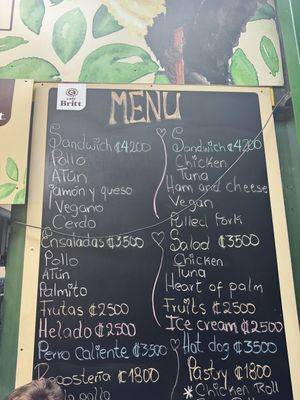 Britt
MENU
Sandwich ₡4200
Pollo
ATÚN
Jamón y queso
Vegano
Cerdo
Ensaladas ₡3500
Pollo
ATÚN
Palmito
Frutas ₡2500
Helado ₡2500
Perro Caliente ₡3500
Repostería ₡1800
Sandwich ₡4200
Chicken
Tuna
Ham and cheese
Vegan
Pulled Pork
Salad ₡3500
Chicken
Tuna
Heart of palm
Fruits ₡2500
Ice cream ₡2500
Hot dog ₡3500
Pastry ₡1800
*Chicken Roll